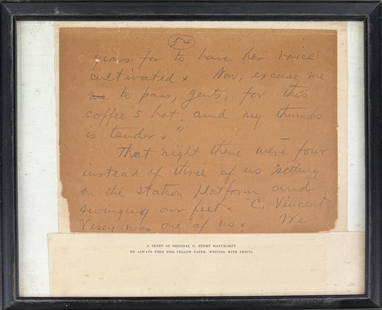 54
for to have her voice
cultivated. Now, excuse me
to pass, gents, for this
coffee's hot, and my thumb
is tender."
That night there were four
instead of three of us sitting
on the station platform and
swinging our feet. C. Vincent
Vesey was one of us. We
A SHEET OF ORIGINAL O. HENRY MANUSCRIPT
HE ALWAYS USED THIS YELLOW PAPER, WRITING WITH PENCIL